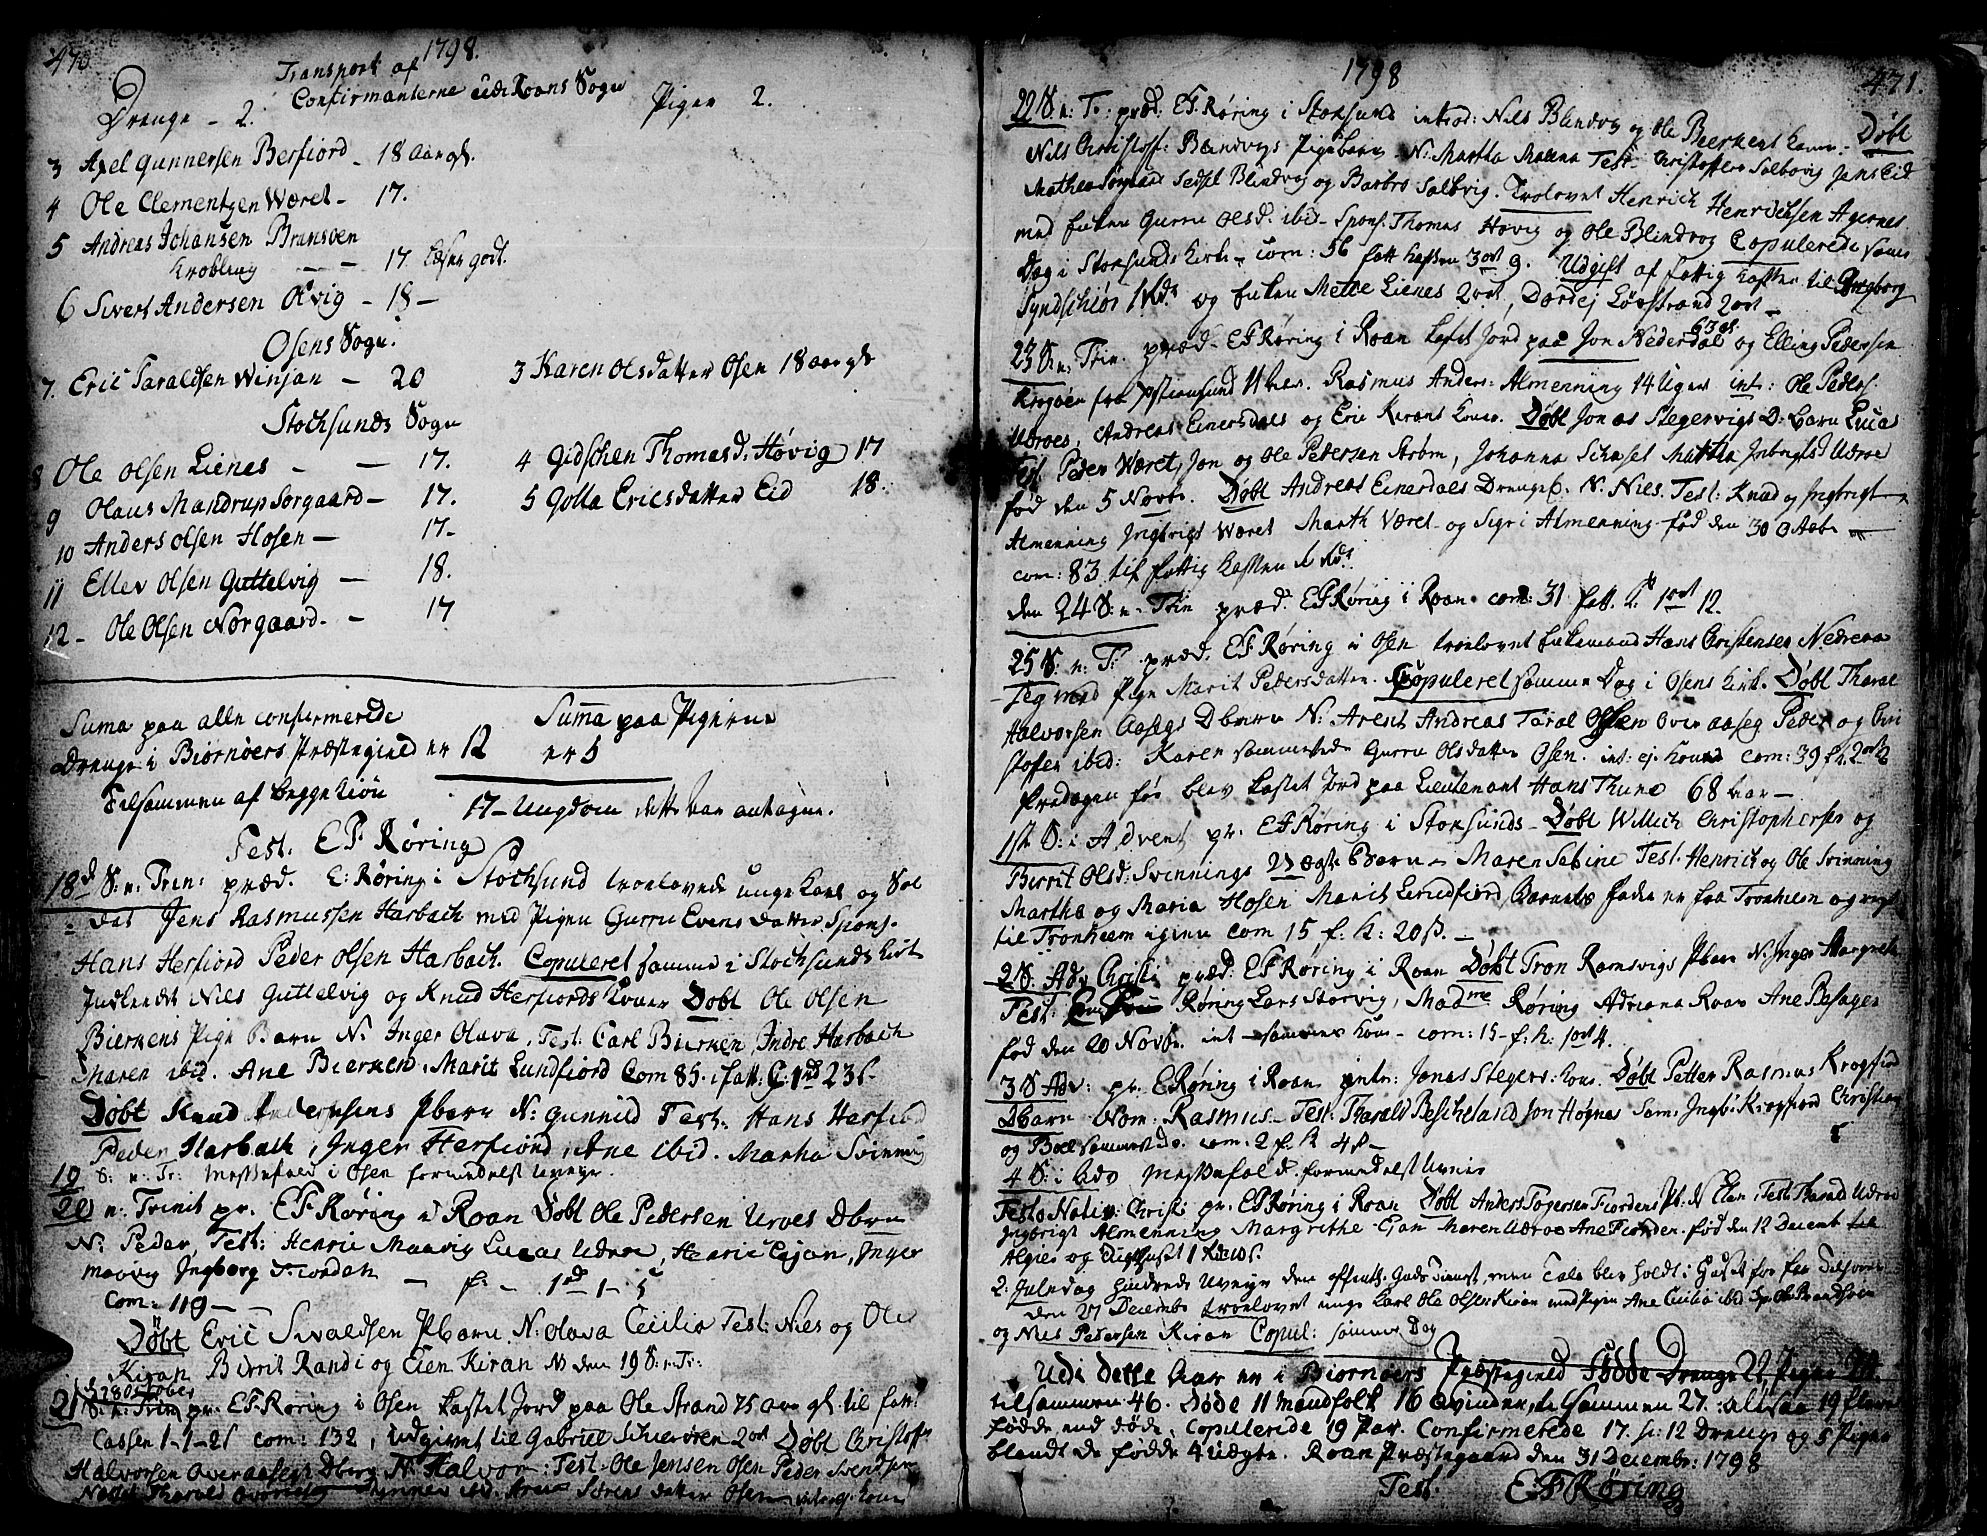 470
1798.
Transport af
Confirmanterne udi Roans Sogn
Drenge - 2.
Piger 2.
3 Axel Gunnersen Berfiord - 18 Aar gl.
4 Ole Clementzen Wæret - 17.
5 Andreas Johansen Bransøen
Krøbling - - 17 læser godt.
6 Sivert Andersen Olvig - 18 -
Osens Sogn.
7. Eric Taraldsen Winjan - 20
3 Karen Olsdatter Osen 18 aar gl
Stochsunds Sogn
8 Ole Olsen Lienes - - 17.
4 Gidschen Thomasd. Høvig 17
9 Olaus Mandrup Sørgaard - 17.
5 Golla Ericsdatter Eid 18.
10 Anders Olsen Hosen - 17 -
11 Ellev Olsen Guttelvig - 18.
12 - Ole Olsen Norgaard. - 17
Suma paa alle confirmerede
Drenge i Biørnøers Præstegield er 12
Suma paa Pigerne
er 5
Tilsammen af begge kiøn
17 - Ungdom dette Aar antagne.
Test. EF Røring
18d S. n. Trin: præd. E: Røring i Stochsund trolovede unge Karl og Sol
dat Jens Rasmussen Harbach med Pigen Gurru Evens datter Spons.
Hans Herfiord Peder Olsen Harbach. Copuleret samme i Stochsunds Kirk
Indledt Nils Guttelvig og Knud Herfiords Koner Døbt Ole Olsen
Bierkens Pige Barn N. Inger Olava, Test. Carl Bierken, Indre Harbach
Maren ibid. Ane Bierken. Marit Lundfiord Com 85. i fatt: C: 1rd 23s.
Døbt Knud Andersens Pbarn N: Gunnild Test. Hans Harfiord
Peder Harbach, Inger Herfiord, Ane ibid. Martha Svinning
19 S. n. Tr: Messefald i Osen formedelst Uveyr.
20 n: Trinit pr. EF Røring i Roan Døbt Ole Pedersen Urøes Dbarn
N: Peder, Test: Henric Maavig Lucas Udroe, Henric Eian, Inger
Maavig Ingborg Fiordan - f: - 1rd 1 - 5
Com: 119 - -
Døbt Eric Sivaldsen Pbarn N: Olava Cecilia Test: Nies og Ole
Kiran Birrit Randi og Elen Kiran NB den 19 S. n. Tr:
28 October
21 S. n. Trin pr. EF Røring i Osen kastet Jord paa Ole Strand 75 Aar gl. til fatt.
Cassen 1 - 1 - 21 com: 132, Udgivet til Gabriel Schierøren 2ort Døbt Christoff.
Halvorsen Overaasegs Dbarn N. Halvor: Test. Ole Jensen Osen Peder Svendsen
1798
471.
22 S. n. Tr. præd. EF Røring i Stoksund introd: Nils Blindvog og Ole Bierkens koner. Døbt
Nils Christoff: Blindvogs Pigebarn. N. Martha Malena Test. Christoffer Salbovig Jens Eid
Mathea Sørgaard Sedsel Blindvog og Barbro Salbvig. Trolovet Henrich Henrichsen Agernes
med Enken Gurru Olsd. ibid - Spons. Thomas Høvig og Ole Blindvog Copulerede samme
Dag i Stoksunds Kirke - com: 56 fatt kassen 3ort 9. Udgift af fattig kassen til Ingborg
Syndschiør 1 Rdr og Enken Mette Lienes 2ort, Dordej Løvstrand 2ort -
23 S. n. Trin. præd. EF Røring i Roan kastet Jord paa Jon Nederdal 63 gl. og Elling Pedersen
Rasmus Anders: Almenning 14 Uger int: Ole Peders.
Udroes, Andreas Einersdals og Eric Kirans koner. Døbt Jonas Stegervigs D. barn Lucas
Test. Peder Wæret, Jon og Ole Petersen Strøm, Johanna Schasel Martha Ingbrigts Udroe
fød den 5 Novbr. Døbt Andreas Einerdals Drengeb: N. Nies. Test: Knud og Ingbrigt
Almenning Ingbrigt Wæret Marth Wæret - og Sigri Almenning. fød den 30 Octbr -
com: 83 til fattig kassen 1 Rd.
den 24 S. n. Trin præd. EF Røring i Roan. com: 31 fatt. k. 1ort 12.
25 S. n. T: præd. EF Røring i Osen trolovet Enkemand Hans Christensen Nedreaa
seg med Pigen Marit Pedersdatter. Copuleret samme Dag i Osens Kirke. Døbt Tharal
Halvorsen Aasegs Dbarn N: Arent Andreas Taral Olsen Overaaseg Peder og Chri
stofer ibid: Karen sammesteds Gurru Olsdatter Osen. int: ej. Kone com: 39 f k. 2ort 8
Fredagen før blev kastet Jord paa Lieutenant Hans Thune 68 Aar -
1st S: i Advent pr. EF Røring i Stoksunds - Døbt Willich Christophersen og
Birrit Olsd: Svennings Uægte Barn - Maren Sabine Test. Henrich og Ole Svinning
Martha og Maria Hosen Marit Lundfiord, Barnets fader er fra Tronhiem og reyst
til Tronhiem igien com 15 f. k: 20 s. -
2 S. Adv Christi præd. EF Røring i Roan Døbt Tron Ramsvigs Pbarn N: Inger Margreta
Test. Røring Lars Storvig, Madme Røring Adriana Roan Ane Besager
fød den 20 Novbr. int sammes kone - com: 15 - f. k: 1ort 4.
3 S Adv: pr. E Røring i Roan intr: Jonas Stegers: kone. Døbt Petter Rasmus Krogfiord
Dbarn Nom. Rasmus - Test. Tharald Bescheland Jon Høgnes Sam. Ingb: Krogfiord Christian
og Boel sammesteds. com: 2 f. k 4 s -
4 S: i Adv Messefald formedelst Uveir
Festo Nativ: Christi pr. EF Røring i Roan Døbt Anders Togersen Fiordens Pb: N Elen, Test: Tharald Udroe
Ingbrigt Almenning Margrethe Eian Maren Udroe Ane Fiorden. fød den 12 Decemb til
2. Juledag hindrede Uveyr den offentl. Guds Tienest, men Tale blev holdt i Huset for
den 27 Decembr trolovet unge Karl Ole Olsen Kiran med Pigen Ane Cecilia ibid
og Nies Pedersen Kiran Copul: samme Dag
Udi dette Aar er i Biørnøers Præstegield Fødde Drenge 22 Piger 24.
tilsammen 46. Døde 11 Mandfolk 16 Qvinder, tilsammen 27. altsaa 19 flere
fødde end døde, Copulerede 19 Par. Confirmerede 17. s: 12 Drenge og 5 Piger
blandt de fødde 4 uægte. Roan Præstegaard den 31 Decembr: 1798
Test. EF Røring